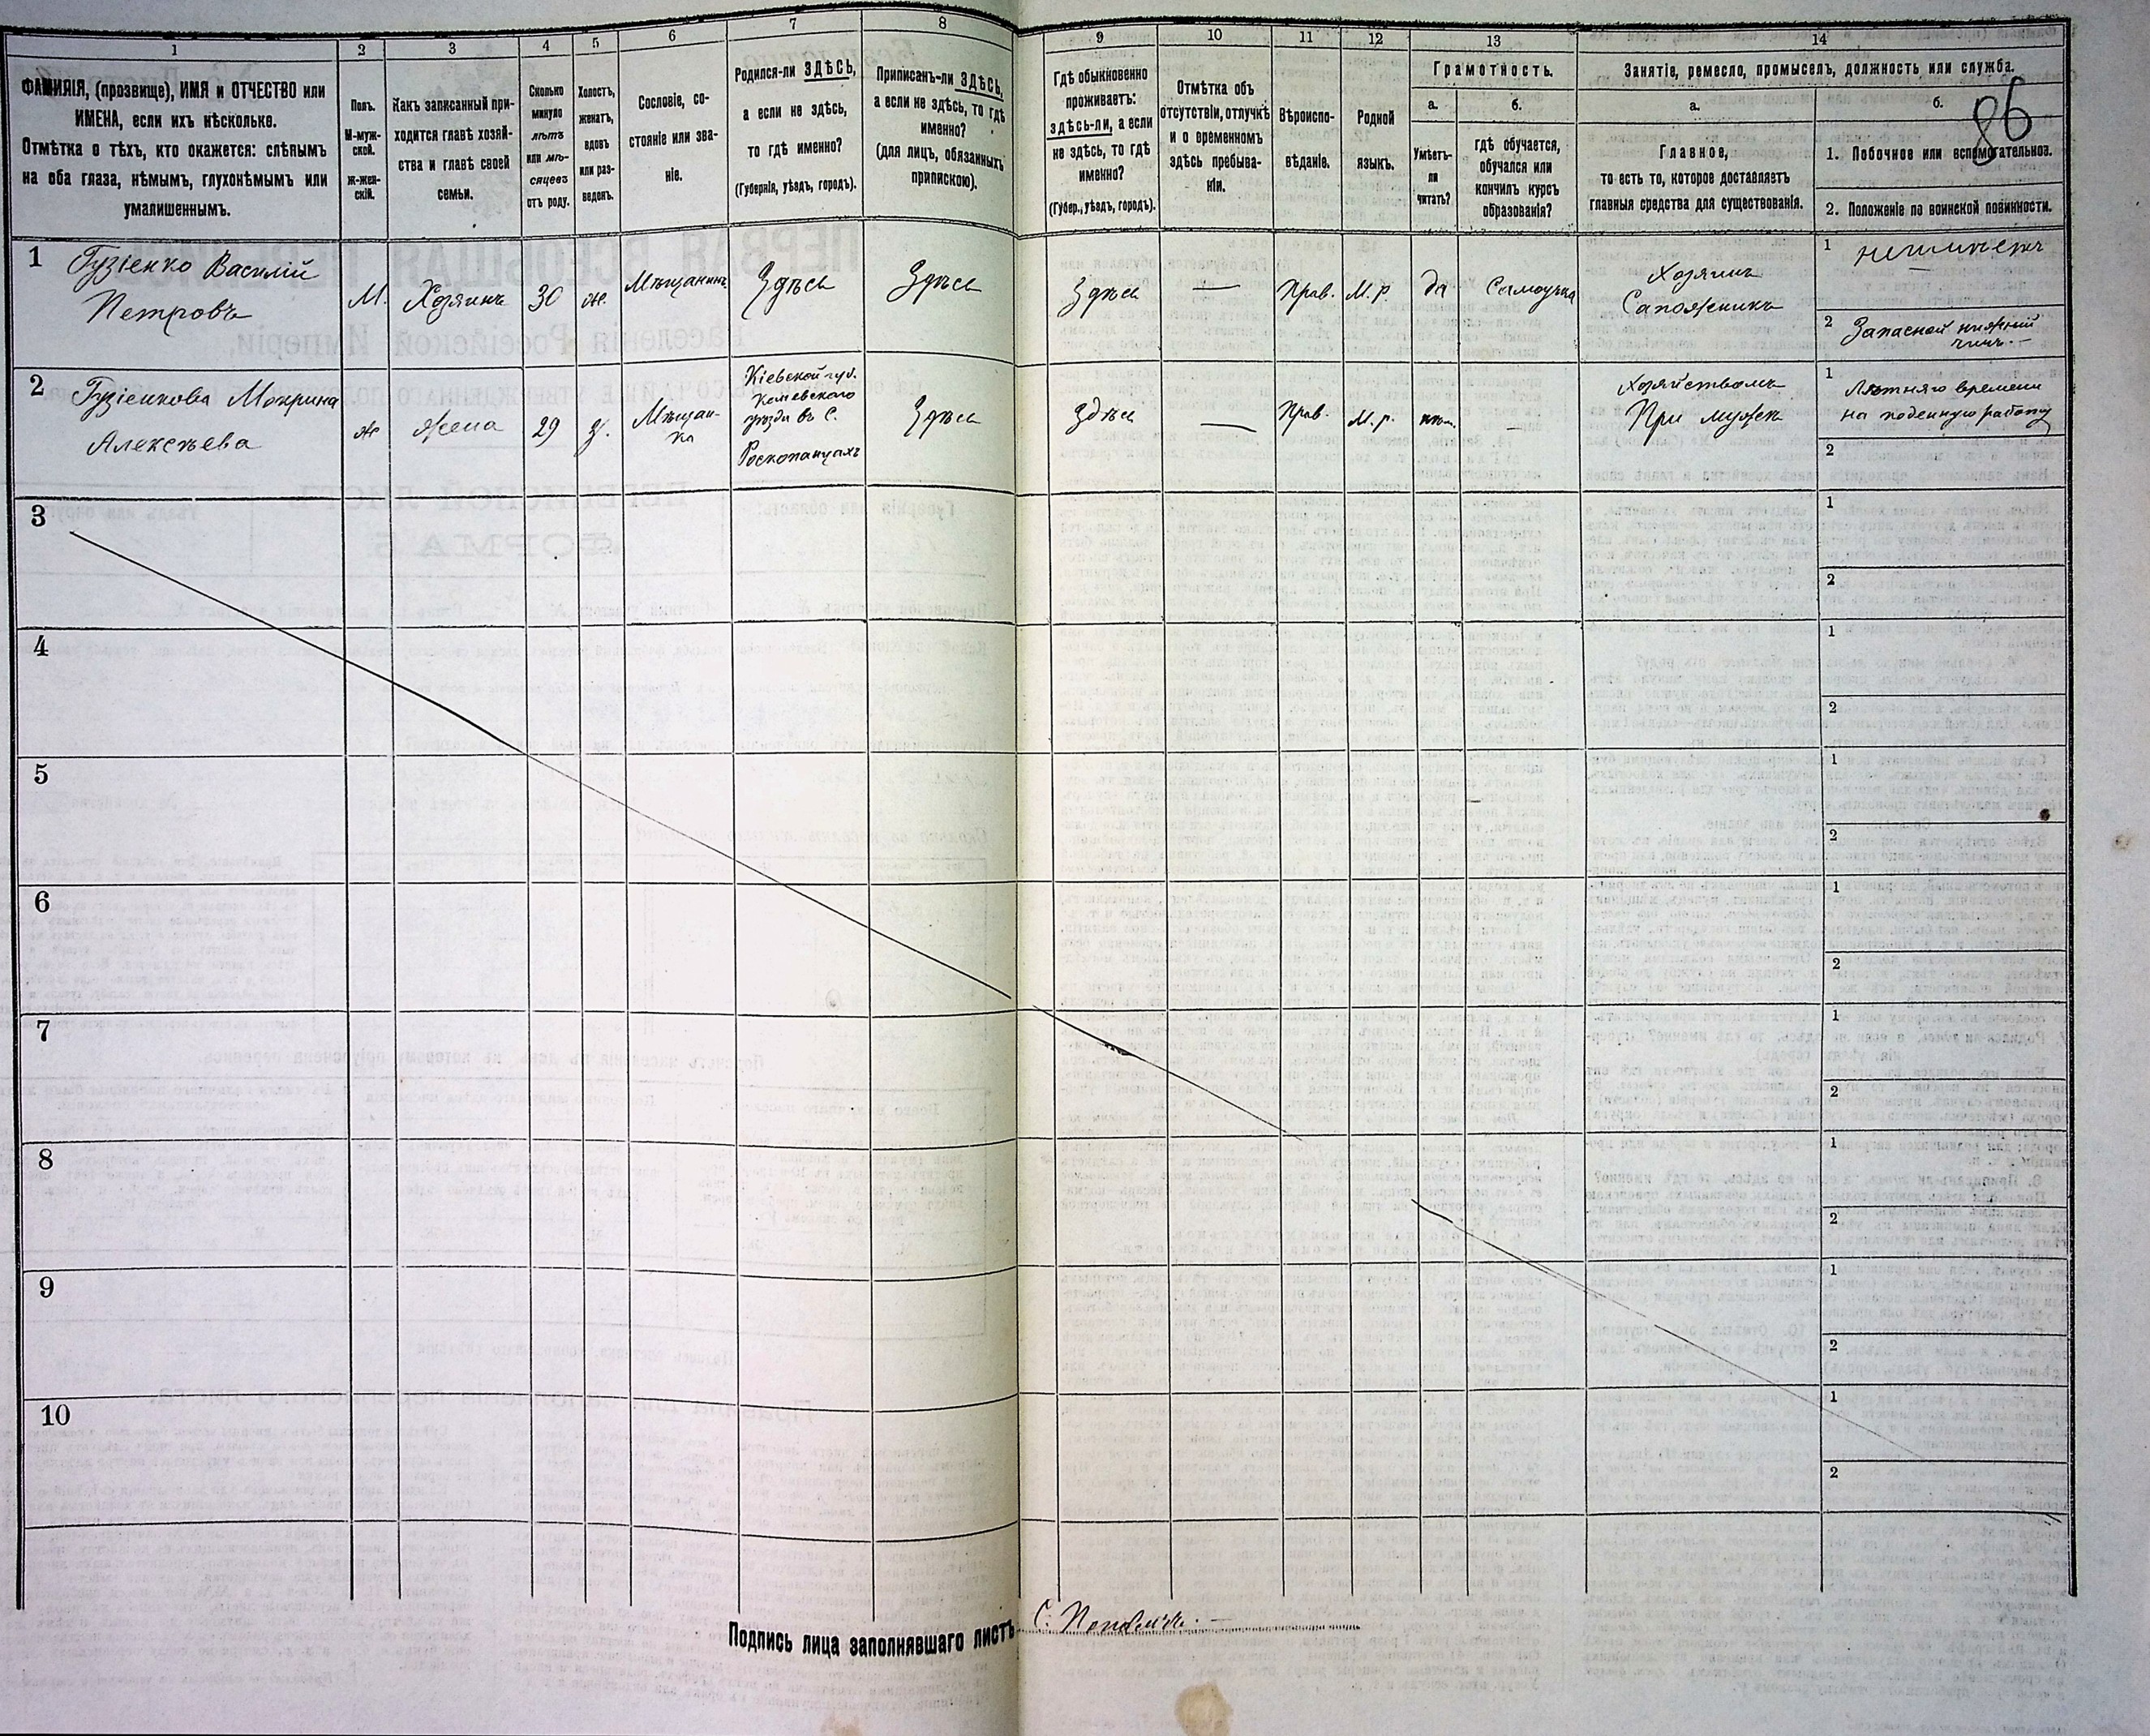 1 2 3 4 5 6 7 8 9 10 11 12 13 14
ФАМИЛІЯ, (прозвище), ИМЯ и ОТЧЕСТВО или
ИМЕНА, если ихъ нѣсколько.
Отмѣтка о тѣхъ, кто окажется: слѣпымъ
на оба глаза, нѣмымъ, глухонѣмымъ или
умалишеннымъ.
Полъ.
М-муж-
ской.
Ж-жен-
скій.
Какъ записанный при-
ходится главѣ хозяй-
ства и главѣ своей
семьи.
Сколько
минуло
лѣтъ
или мѣ-
сяцевъ
отъ роду.
Холостъ,
женатъ,
вдовъ
или раз-
веденъ.
Сословіе, со-
стояніе или зва-
ніе.
Родился-ли ЗДѢСЬ,
а если не здѣсь,
то гдѣ именно?
(Губернія, уѣздъ, городъ).
Приписанъ-ли ЗДѢСЬ,
а если не здѣсь, то гдѣ
именно?
(для лицъ, обязанныхъ
припискою).
Гдѣ обыкновенно
проживаетъ:
здѣсь-ли, а если
не здѣсь, то гдѣ
именно?
(Губер., уѣздъ, городъ).
Отмѣтка объ
отсутствіи, отлучкѣ
и о временномъ
здѣсь пребыва-
ніи.
Вѣроиспо-
вѣданіе.
Родной
языкъ.
Грамотность.
а.
Умѣетъ-
ли
читать?
б.
гдѣ обучается,
обучался или
кончилъ курсъ
образованія?
Занятіе, ремесло, промыселъ, должность или служба.
а.
Главное,
то есть то, которое доставляетъ
главныя средства для существованія.
б.
86
1. Побочное или вспомогательное.
2. Положеніе по воинской повинности.
1
Гузіенко Василій
Петровъ
М.
Хозяинъ
30
ж.
Мѣщанинъ
Здѣсь
Здѣсь
Здѣсь
—
Прав.
М. р.
да
Самоучка
Хозяинъ
Сапожникъ
1
2 Запасной нижній
чинъ.
2
Гузіенкова Мокрина
Алексѣева
ж
Жена
29
З.
Мѣщан-
ка
Кіевской губ.
Каневскаго
уѣзда въ С.
Роскопанцахъ
Здѣсь
Здѣсь
—
Прав.
М. р.
нѣт.
–
Хозяйствомъ
При мужѣ
1 Лѣтняго времени
на поденную работу
2
3 1
2
4 1
2
5 1
2
6 1
2
7 1
2
8 1
2
9 1
2
10 1
2
Подпись лица заполнявшаго листъ С.